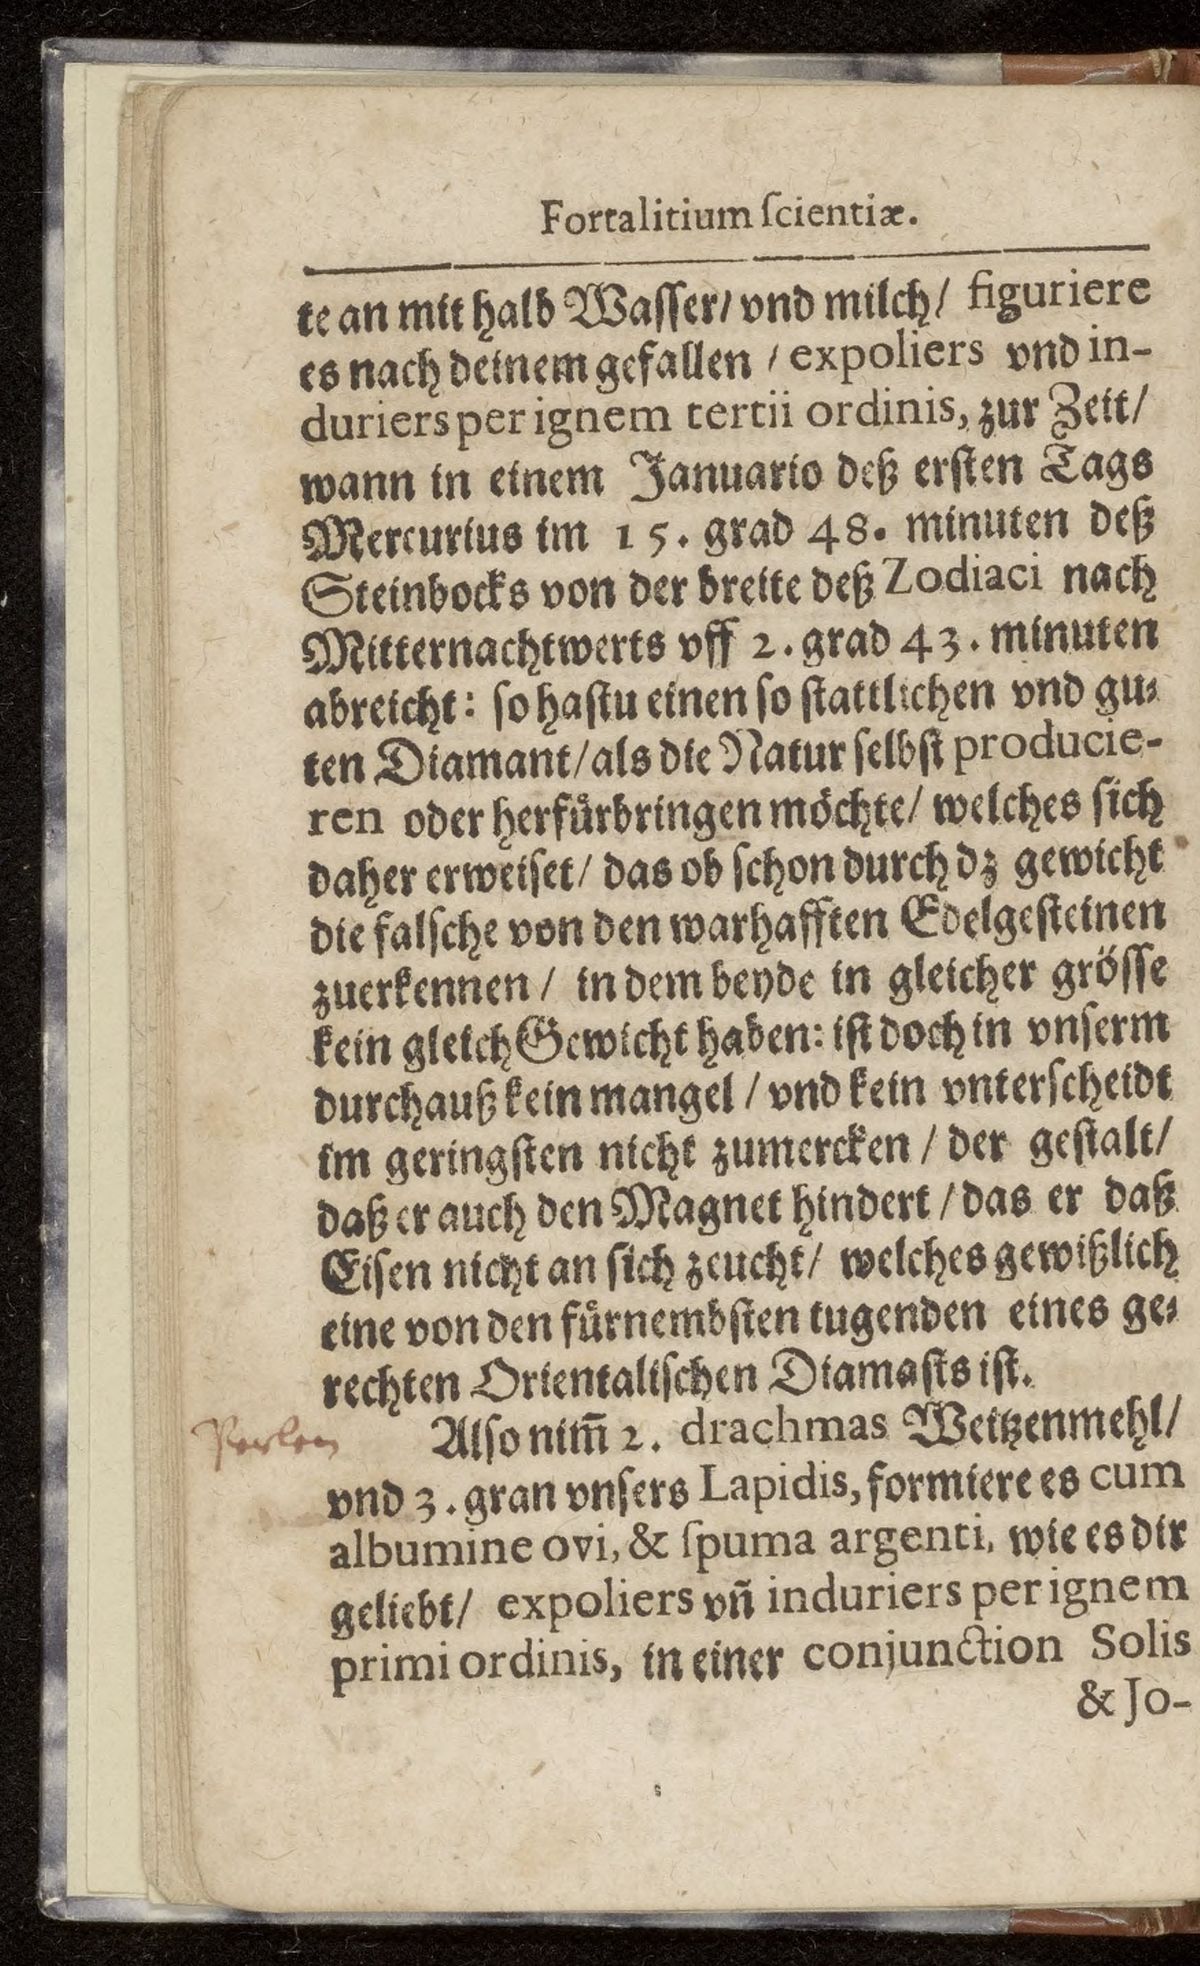 Fortalitium ſcientiæ.
te an mit halb Waſſer/ vnd milch/ figuriere
es nach deinem gefallen / expoliers vnd in-
duriers per ignem tertii ordinis, zur Zeit/
wann in einem Januario deß erſten Tags
Mercurius im 15. grad 48. minuten deß
Steinbocks von der breite deß Zodiaci nach
Mitternachtwerts vff 2. grad 43. minuten
abreicht: ſo haſtu einen ſo ſtattlichen vnd gu-
ten Diamant/ als die Natur ſelbſt producie-
ren oder herfuͤrbringen moͤchte/ welches ſich
daher erweiſet/ das ob ſchon durch dz gewicht
die falſche von den warhafften Edelgeſteinen
zuerkennen / in dem beyde in gleicher groͤſſe
kein gleich Gewicht haben: iſt doch in vnſerm
durchauß kein mangel / vnd kein vnterſcheidt
im geringſten nicht zumercken / der geſtalt/
daß er auch den Magnet hindert / das er daß
Eiſen nicht an ſich zeucht/ welches gewißlich
eine von den fuͤrnembſten tugenden eines ge-
rechten Orientaliſchen Diamaſts iſt.
Perlen
Alſo nim̄ 2. drachmas Weitzenmehl/
vnd 3. gran vnſers Lapidis, formiere es cum
albumine ovi, & ſpuma argenti, wie es dir
geliebt/ expoliers vn̄ induriers per ignem
primi ordinis, in einer conjunction Solis
& Jo-